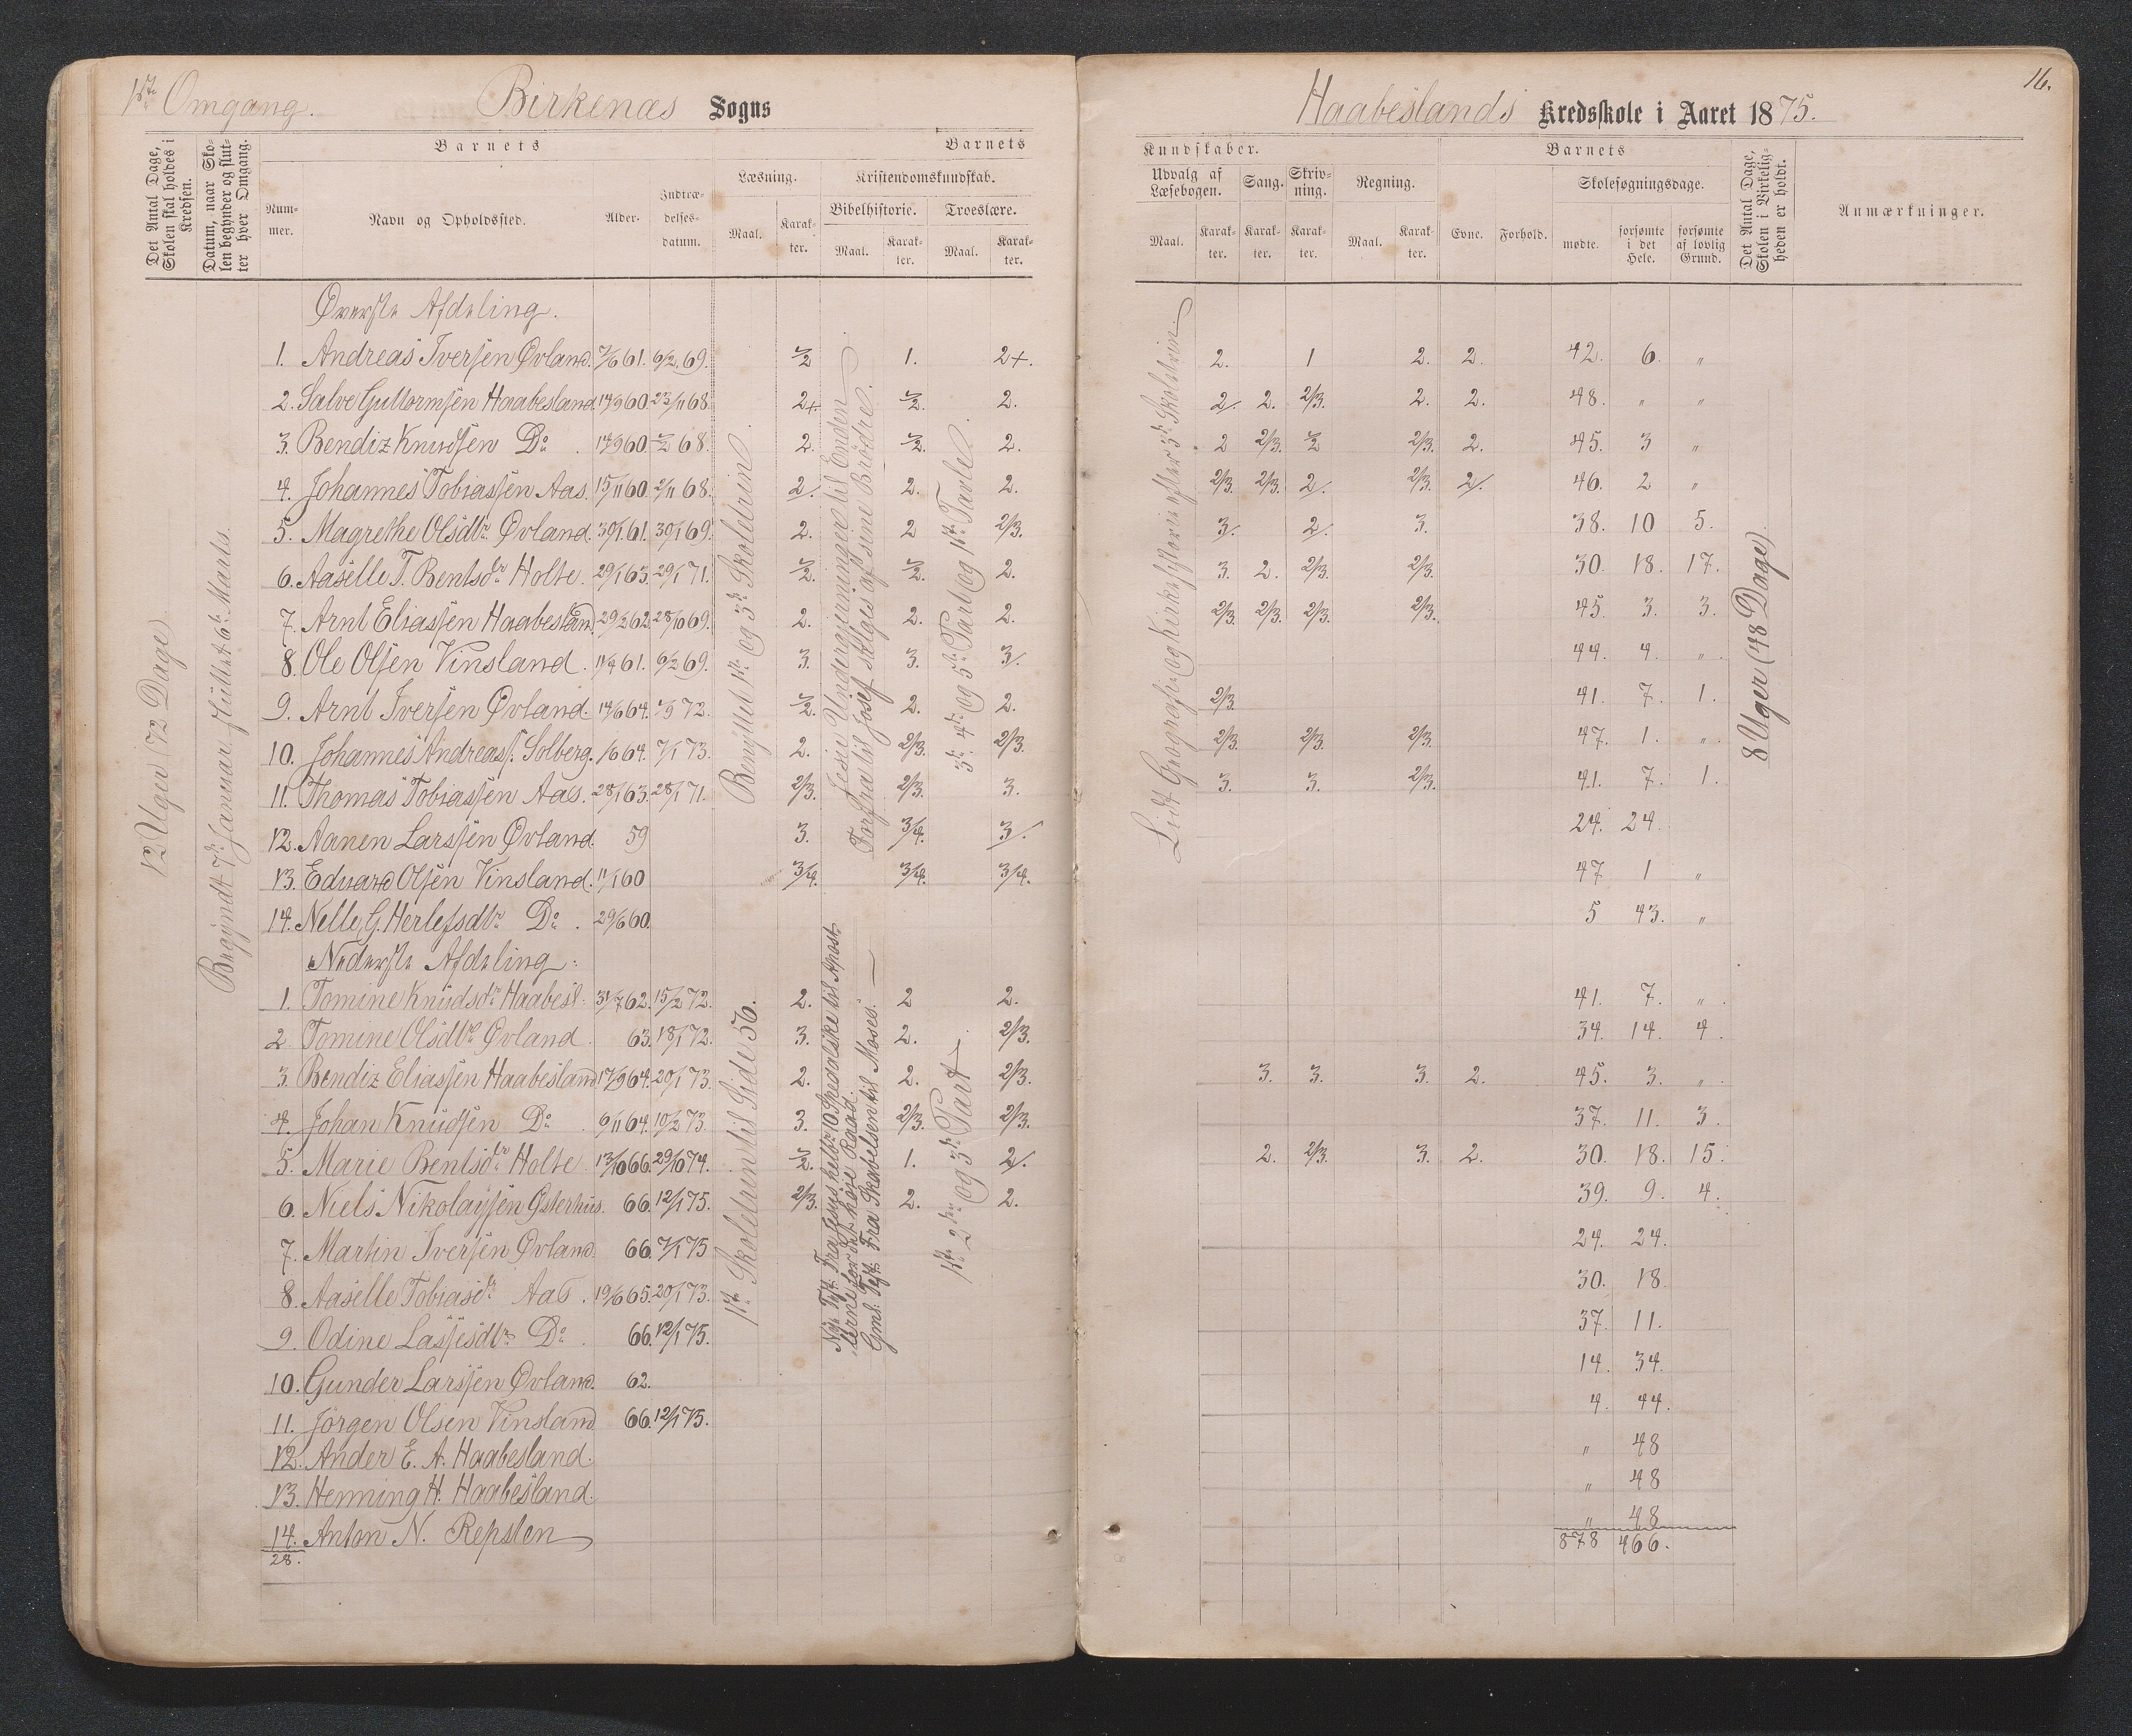 1ste Omgang. Birkenæs Sogns
Haabeslands Kredsskole i Aaret 1875. 16.
Det Antal Dage, Skolen skal holdes i Kredsen.
Datum, naar Skolen begynder og slutter hver Omgang.
Barnets
Barnets
Nummer.
Navn og Opholdssted.
Alder.
Indtrædelsesdatum.
Læsning.
Maal.
Karakter.
Kristendomskundskab.
Bibelhistorie.
Troeslære.
Maal.
Karakter.
Maal.
Karakter.
Kundskaber.
Barnets
Udvalg af Læsebogen.
Sang.
Skrivning.
Regning.
Maal.
Karakter.
Karakter.
Karakter.
Maal.
Karakter.
Evne.
Forhold.
Skolesøgningsdage.
mødte.
forsømte i det Hele.
forsømte af lovlig Grund.
Det Antal Dage, Skolen i Virkeligheden er holdt.
Anmærkninger.
12 Uger (72 Dage)
Begyndt 7de Januar, sluttet 6te Marts.
Benyttet 1ste og 3die Skoletrin.
Jesu Undergjerninger til Enden
Forfra til Josef sælges af sine Brödre.
3die 4de og 5te Part og 1ste Tavle.
Lidt Geografi og Kirkehistorie efter 3die Skoletrin.
8 Uger (48 Dage)
Øverste Afdeling.
1. Andreas Iversen Øvland. 7/6 61. 6/2 69. 1/2 1. 2+. 2. 1 2. 2. 42. 6. "
2. Salve Guttormsen Haabesland. 14/9 60. 23/11 68. 2+. 1/2. 2. 2/. 2. 2/3. 2. 2. 48. " "
3. Bendix Knudsen Do. 17/9 60. 1/2 68. 2. 1/2. 2. 2 2/3. 1/2 2/3. 2. 45. 3 "
4. Johannes Tobiassen Aas. 15/11 60. 2/11 68. 2/. 2. 2. 2/3. 2/3. 2/. 2/3. 2/. 46. 2 "
5. Magrethe Olsdtr. Øvland. 30/1 61. 30/1 69. 2. 2 2/3. 3/. 2/. 3. 38. 10 5.
6. Aaselle T. Bentsdtr Holte. 29/1 63. 29/1 71. 1/2. 1/2. 2. 3. 2. 2/3. 2/3. 30. 18. 17.
7. Arnt Eliassen Haabesland. 29/2 62. 28/10 69. 2. 2. 2. 2/3. 2/3. 2/3. 2/3. 45. 3. 3.
8. Ole Olsen Vinsland. 11/4 61. 6/2 69. 3. 3. 3/. 44. 4. "
9. Arnt Iversen Øvland. 14/6 64. 1/9 72. 1/2. 2. 2. 2/3. 41. 7. 1.
10. Johannes Andreass. Solberg. 1/6 64. 7/1 73. 2. 2/3. 2/3. 2/3. 2/3. 2/3. 47. 1. "
11. Thomas Tobiassen Aas. 28/1 63. 28/1 71. 2/3. 2/3. 3. 3. 3. 2/3. 41. 7. 1.
12. Aanen Larssen Øvland. 59 3. 3/4. 3/. 24. 24.
13. Edvard Olsen Vinsland. 11/1 60 3/4. 3/4. 3/4. 47 1 "
14. Nelle G. Herlefsdtr Do. 29/6 60. 5 43. "
Nederste Afdeling.
1ste Skoletrin til Side 56.
Nye Test. Fra Jesus helbr. 10 Spedalske til Apost-
lerne for det höie Raad.
Gml. Test. Fra Skabelsen til Moses.
1ste 2den og 3die Part
1. Tomine Knudsdtr Haabesl. 31/7 62. 15/2 72. 2. 2 2. 41. 7. "
2. Tomine Olsdtr Øvland 63. 18/1 72. 3. 2. 2/3. 34. 14. 4.
3. Bendix Eliassen Haabesland 17/9 64. 20/1 73. 2. 2. 2/3. 3. 3. 3. 2. 45. 3. "
4. Johan Knudsen Do. 6/11 64. 10/2 73. 3. 2/3. 2/3. 37. 11. 3.
5. Marie Bentsdtr Holte 13/10 66. 29/10 74. 1/2. 1. 2/. 2. 2/3. 3. 2. 30. 18. 15.
6. Niels Nikolaysen Østerhus. 66. 12/1 75. 2/3. 2. 2. 39. 9. 4.
7. Martin Iversen Øvland. 66. 7/1 75 24. 24.
8. Aaselle Tobiasdtr Aas. 19/6 65. 20/1 73. 30. 18.
9. Odine Lassesdtr. Do. 66. 12/1 75. 37. 11.
10. Gunder Larssen Øvland. 62. 14. 34.
11. Jörgen Olsen Vinsland 66. 12/1 75. 4. 44.
12. Ander E. A. Haabesland. " 48
13. Henning H. Haabesland. " 48
14. Anton N. Repsten " 48
28. 878 466.